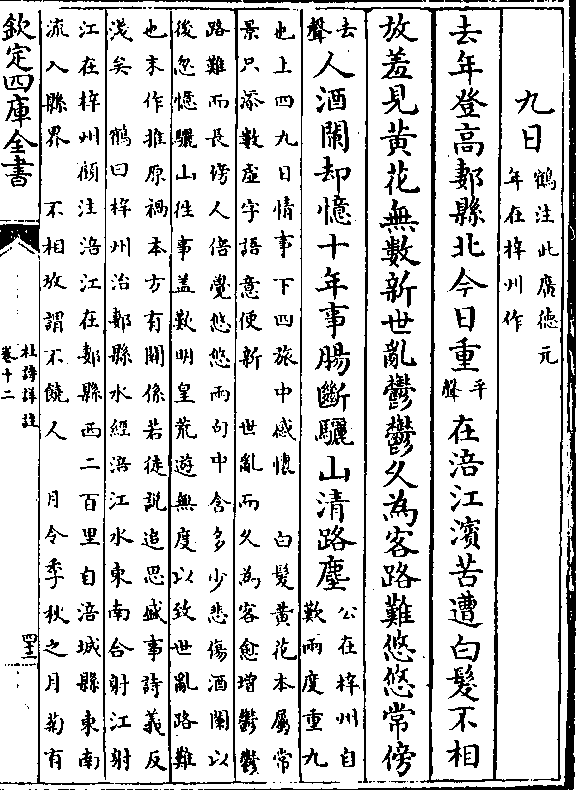 九日
鶴注此廣德元
年在梓州作
去年登高郪縣北今日重
平
聲
在涪江濱苦遭白髮不相
放羞見黃花無數新世亂鬱鬱久為客路難悠悠常傍
去
聲
人酒闌却憶十年事腸斷驪山清路塵
公在梓州自
歎兩度重九
也上四九日情事下四旅中感懷　白髮黃花本屬常
景只添數虛字語意便新　世亂而久為客愈增鬱鬱
路難而長傍人倍覺悠悠兩句中含多少悲傷酒闌以
後忽憶驪山往事蓋歎明皇荒遊無度以致世亂路難
也末作推原禍本方有關係若徒說追思盛事詩義反
淺矣　鶴曰梓州治郪縣水經涪江水東南合射江射
江在梓州顧注涪江在郪縣西二百里自涪城縣東南
流入縣界　不相放謂不饒人　月令季秋之月菊有
欽定四庫全書
杜詩詳註
卷十二